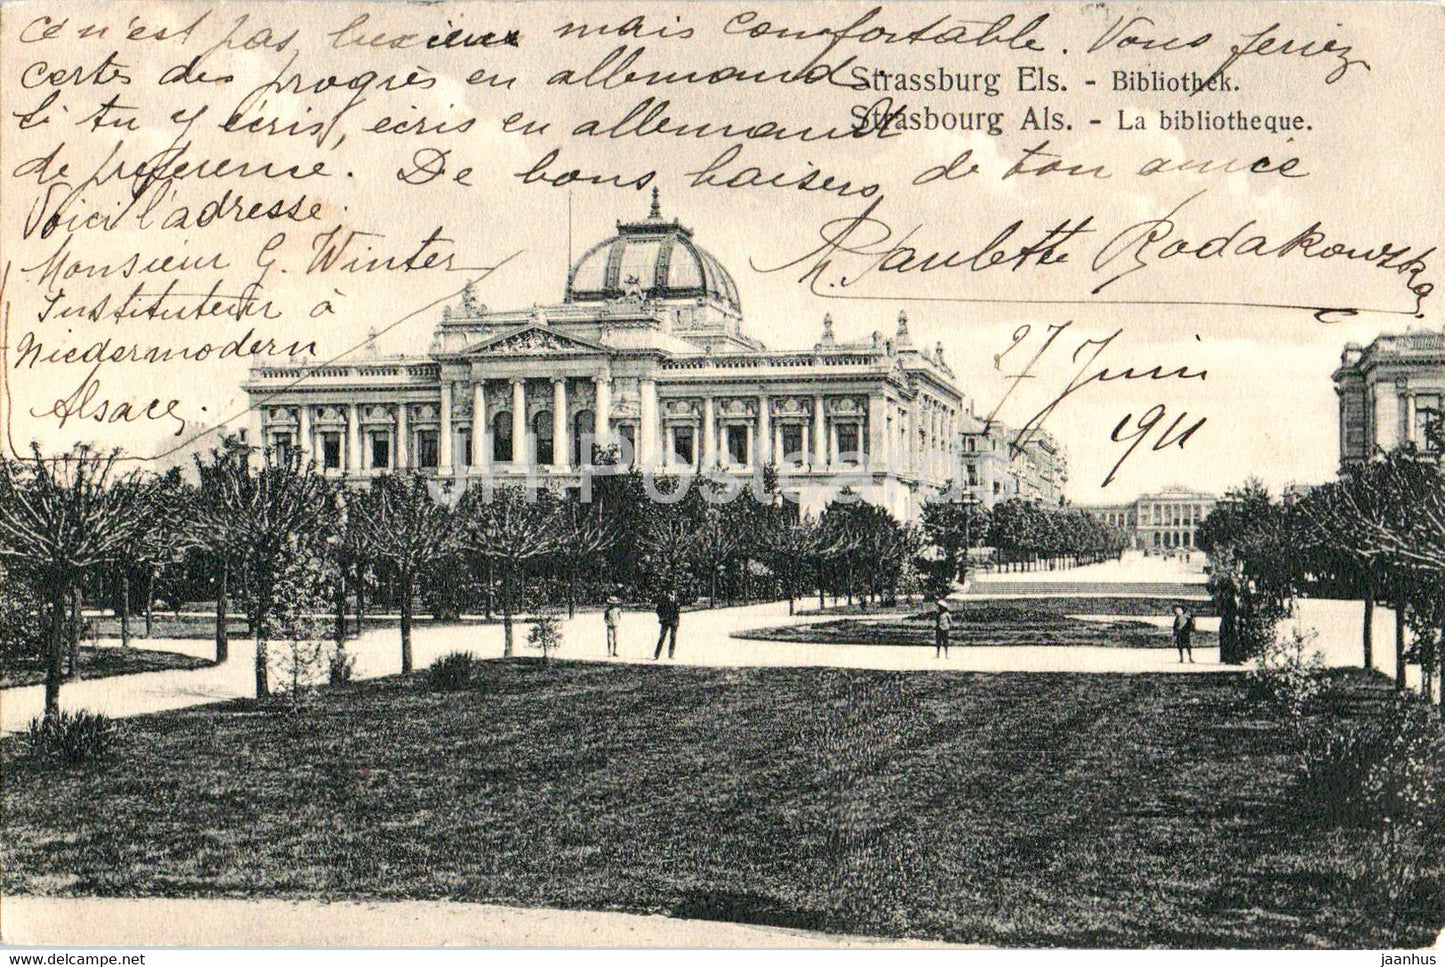 ce n'est pas luxieux mais comfortable. Vous feriez
certes des progrès en allemand.
Si tu y écris, écris en allemand
de préference. De bons baisers de ton amie
Strassburg Els. - Bibliothek.
Strasbourg Als. - La bibliotheque.
Voici l'adresse.
Monsieur G. Winter
Instituteur à
Niedermodern
Alsace.
Paulette Rodakowska.
27 Juin
1911
JH Postcard
jaanhus